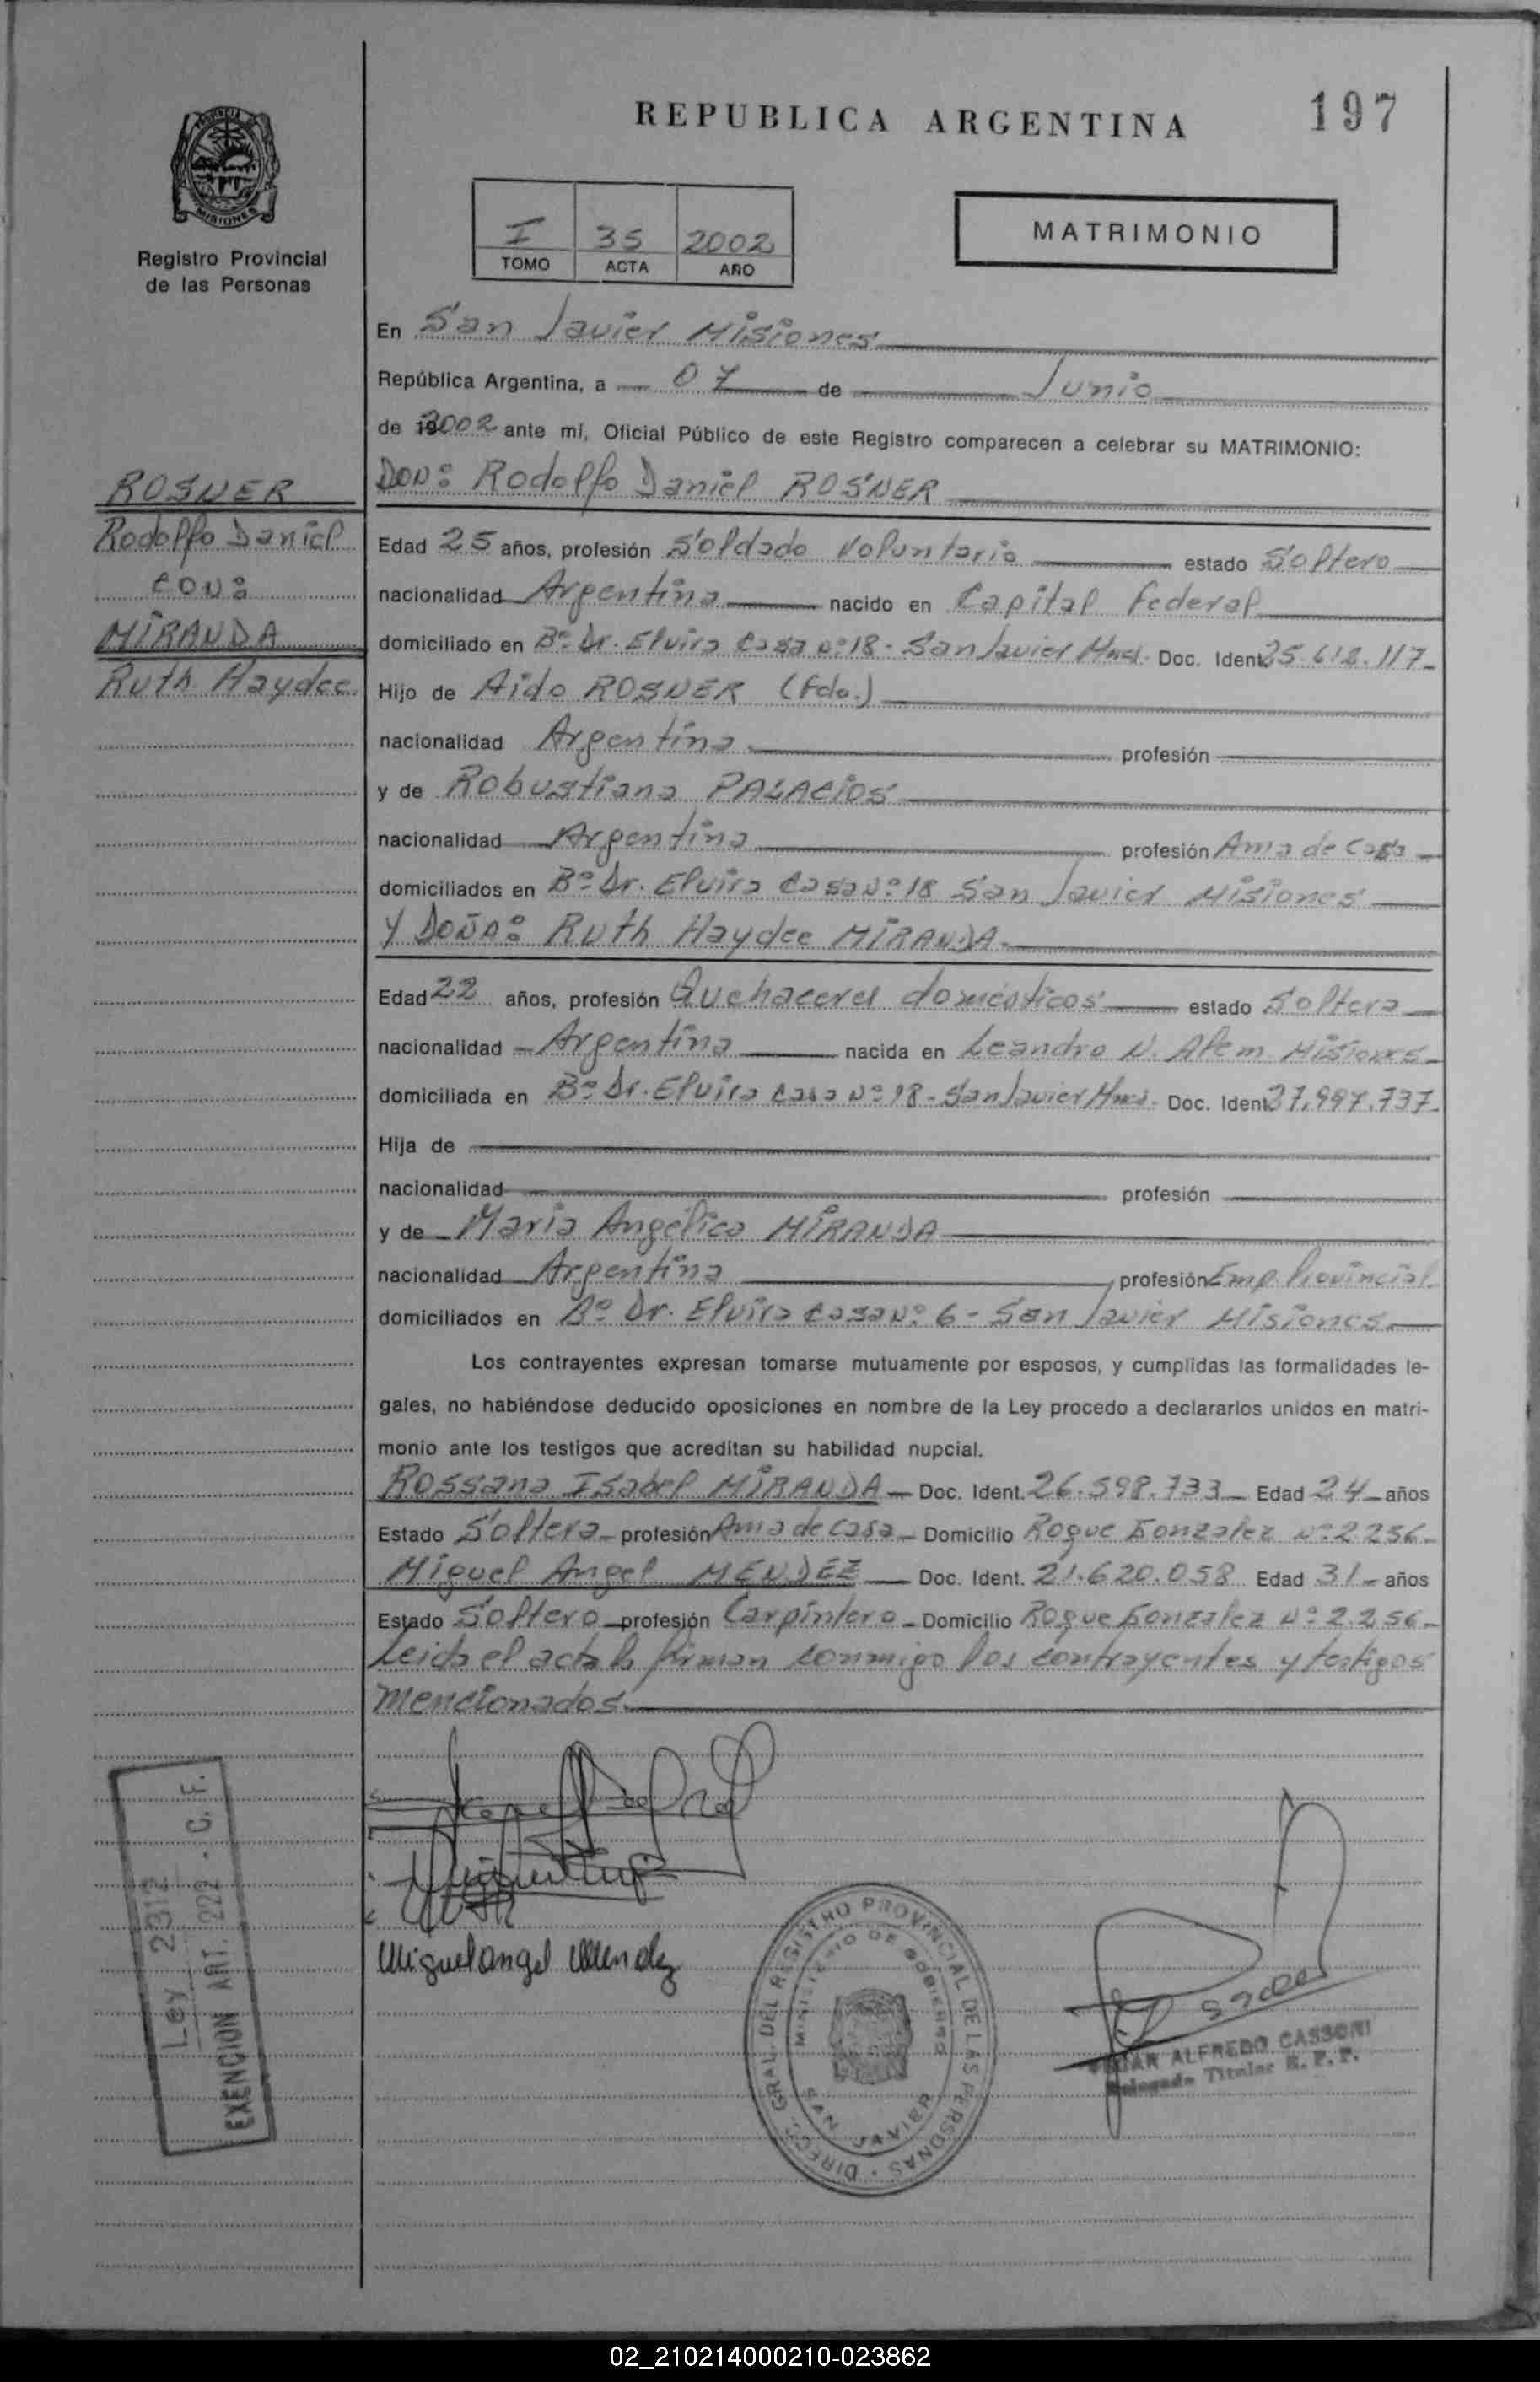 REPUBLICA ARGENTINA
197
PROVINCIA DE
MISIONES
Registro Provincial
de las Personas
I 35 2002
TOMO ACTA AÑO
MATRIMONIO
En San Javier Misiones
República Argentina, a 07 de Junio
de 2002 ante mí, Oficial Público de este Registro comparecen a celebrar su MATRIMONIO:
ROSNER
Rodolfo Daniel
CON:
MIRANDA
Ruth Haydee
DON: Rodolfo Daniel ROSNER
Edad 25 años, profesión Soldado Voluntario estado Soltero
nacionalidad Argentina nacido en Capital Federal
domiciliado en Bº Dr. Elvira Casa Nº 18 - San Javier Mnes. Doc. Ident. 25.612.117
Hijo de Aido ROSNER (Fdo.)
nacionalidad Argentina profesión
y de Robustiana PALACIOS
nacionalidad Argentina profesión Ama de Casa
domiciliados en Bº Dr. Elvira Casa Nº 18 San Javier Misiones
Y DOÑA: Ruth Haydee MIRANDA
Edad 22 años, profesión Quehaceres domésticos estado Soltera
nacionalidad Argentina nacida en Leandro N. Alem Misiones
domiciliada en Bº Dr. Elvira Casa Nº 18 - San Javier Mnes. Doc. Ident. 27.997.737
Hija de
nacionalidad profesión
y de Maria Angélica MIRANDA
nacionalidad Argentina profesión Emp. Provincial
domiciliados en Bº Dr. Elvira Casa Nº 6 - San Javier Misiones
Los contrayentes expresan tomarse mutuamente por esposos, y cumplidas las formalidades le-
gales, no habiéndose deducido oposiciones en nombre de la Ley procedo a declararlos unidos en matri-
monio ante los testigos que acreditan su habilidad nupcial.
Rossana Isabel MIRANDA Doc. Ident. 26.598.733 Edad 24 años
Estado Soltera profesión Ama de Casa Domicilio Roque Gonzalez Nº 2256
Miguel Angel MENDEZ Doc. Ident. 21.620.058 Edad 31 años
Estado Soltero profesión Carpintero Domicilio Roque Gonzalez Nº 2.256
Leida el acta la firman conmigo los contrayentes y testigos
mencionados
Miguel angel Mendez
Ley 2312
EXENCION ART. 222 - C. F.
DIREC. GRAL. DEL REGISTRO PROVINCIAL DE LAS PERSONAS
MINISTERIO DE GOBIERNO
SAN JAVIER
ALFREDO CASSONI
Delegado Titular R. P. P.
02_210214000210-023862